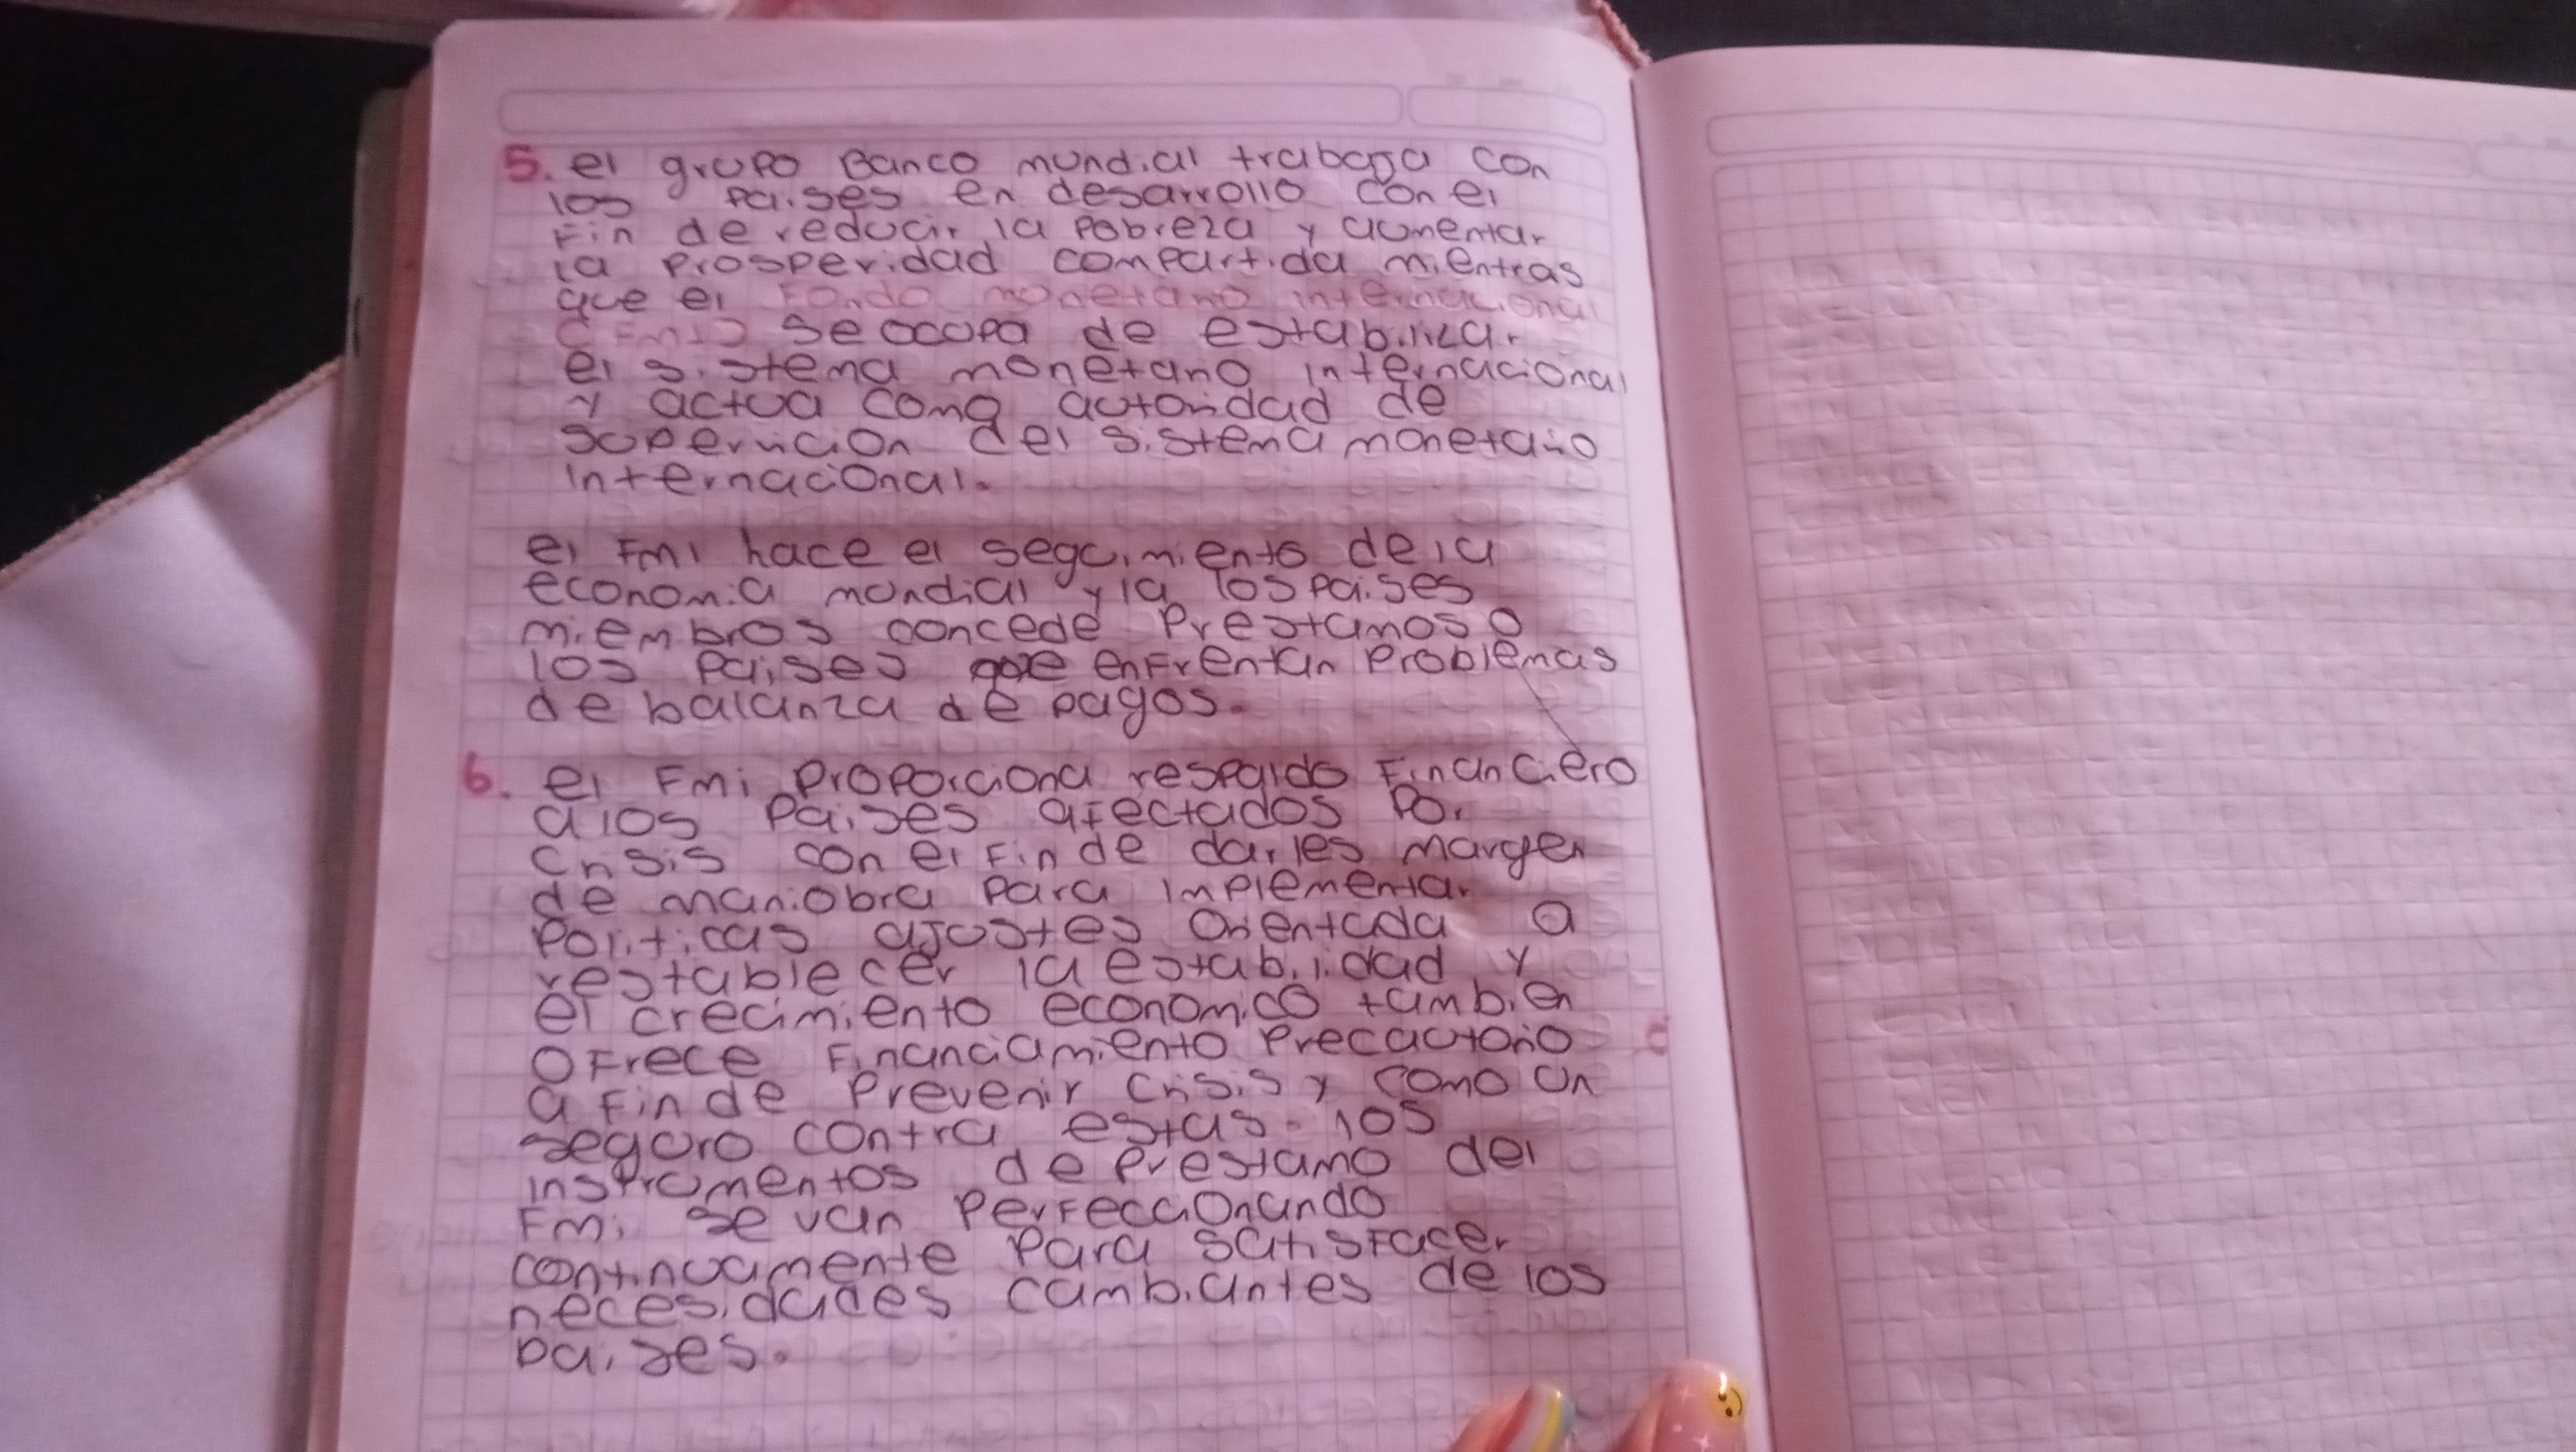 5. el grupo Banco mundial trabaja con
los paises en desarrollo con el
Fin de reducir la pobreza y aumentar
la prosperidad compartida mientras
que el Fondo monetario internacional
(FMI) se ocupa de estabilizar
el sistema monetario internacional
y actua como autoridad de
supervicion del sistema monetario
internacional.
el FMI hace el seguimiento de la
economia mundial y la los paises
miembros concede Prestamos o
los paises que enFrentan problemas
de balanza de pagos.
6. el FMi proporciona respaldo Financiero
a los paises aFectados por
crisis con el Fin de darles margen
de maniobra para implementar
politicas ajustes orientada a
restablecer la estabilidad y
el crecimiento economico tambien
oFrece Financiamiento precautorio
a Fin de prevenir crisis y como un
seguro contra estas. los
instrumentos de prestamo del
FMi se van perFeccionando
continuamente para satisFacer
necesidades cambiantes de los
paises.